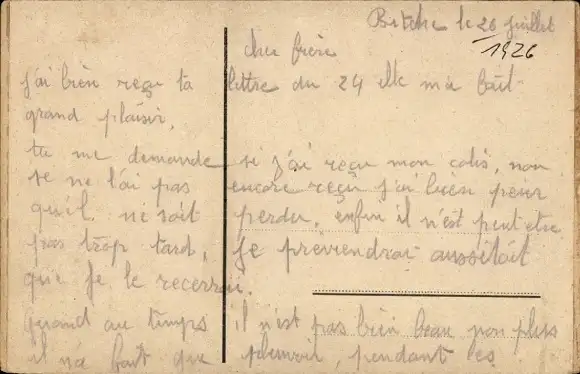 Bitche le 26 juillet
1926
cher frère
j'ai bien reçu ta lettre du 24 elle m'a fait
grand plaisir,
tu me demande si j'ai reçu mon colis, non
je ne l'ai pas encore reçu j'ai bien peur
qu'il ne soit perdu, enfin il n'est peut etre
pas trop tard, je préviendrai aussitôt
que je le recevrai.
quand au temps il n'est pas bien beau non plus
il n'a fait que pleuvoir, pendant ces